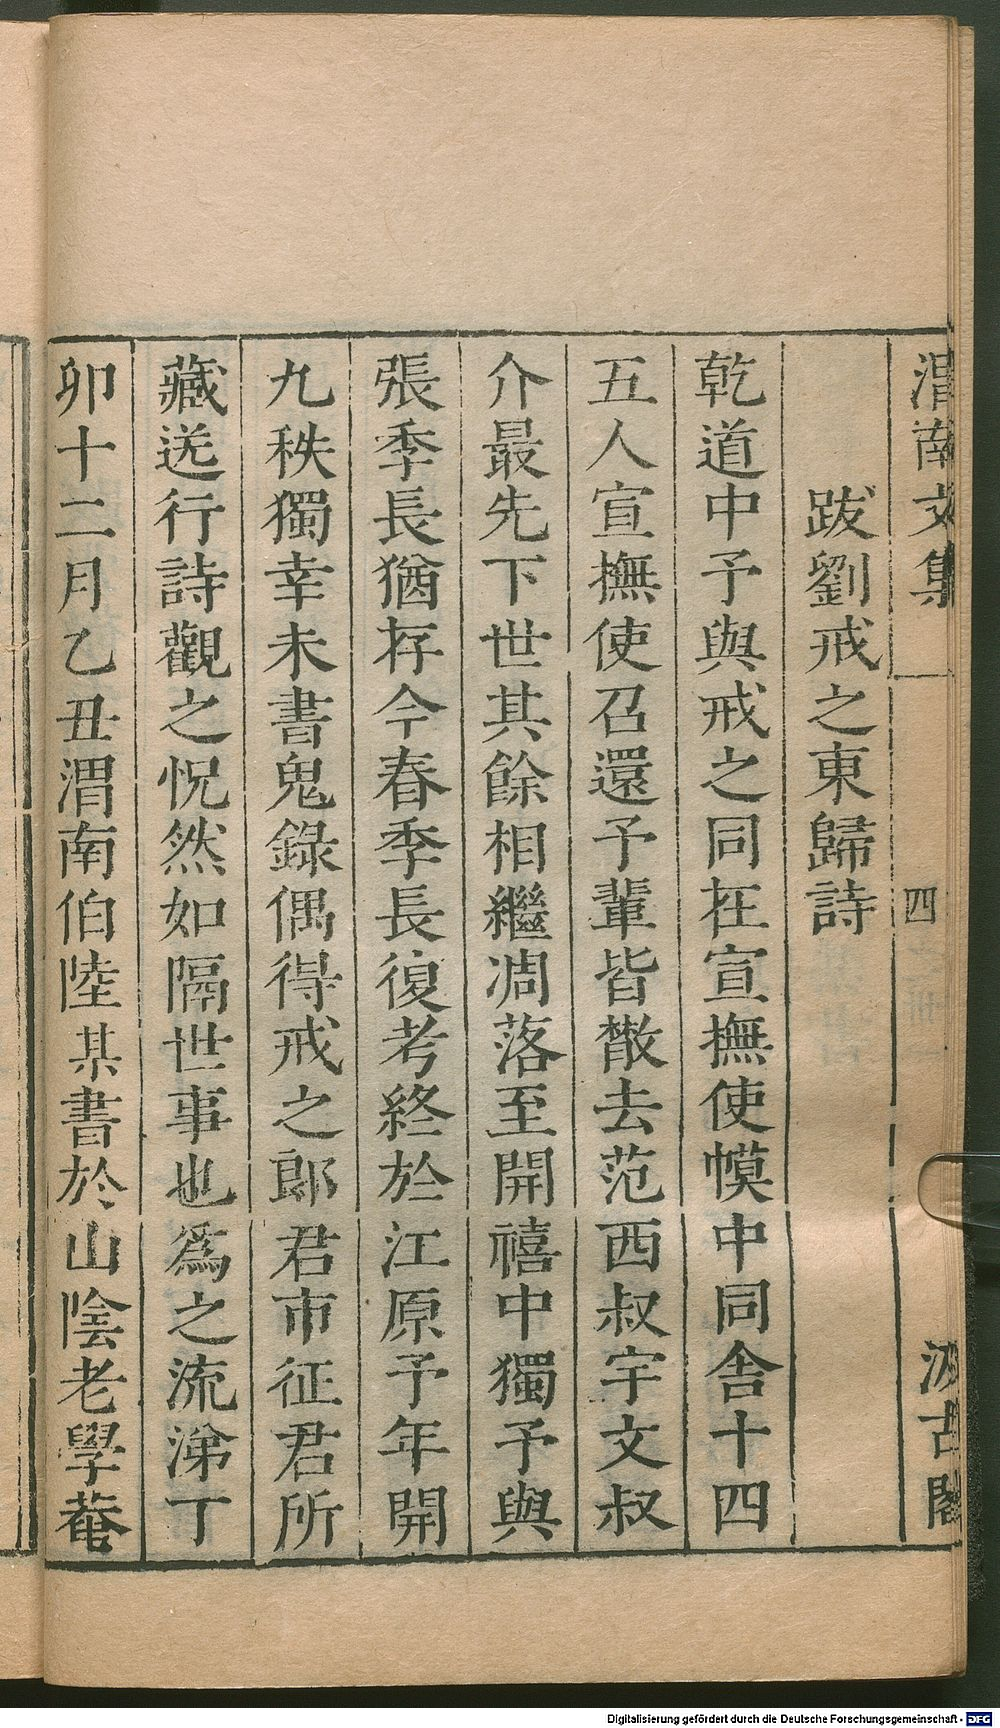 渭南文集
四
汲古閣
跋劉戒之東歸詩
乾道中予與戒之同在宣撫使幙中同舍十四
五人宣撫使召還予輩皆散去范西叔宇文叔
介最先下世其餘相繼凋落至開禧中獨予與
張季長猶存今春季長復考終於江原予年開
九秩獨幸未書鬼錄偶得戒之郎君市征君所
藏送行詩觀之怳然如隔世事也爲之流涕丁
卯十二月乙丑渭南伯陸某書於山陰老學菴
Digitalisierung gefördert durch die Deutsche Forschungsgemeinschaft - DFG